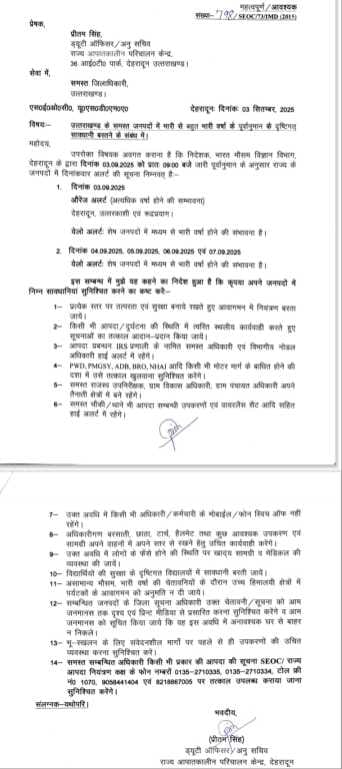 महत्वपूर्ण/आवश्यक
संख्या:- 798/SEOC/73/IMD (2015)
प्रेषक,
प्रीतम सिंह,
ड्यूटी ऑफिसर/अनु सचिव
राज्य आपातकालीन परिचालन केन्द्र,
36 आई०टी० पार्क, देहरादून उत्तराखण्ड।
सेवा में,
समस्त जिलाधिकारी,
उत्तराखण्ड।
एस०ई०ओ०सी०, यू०एस०डी०एम०ए० देहरादूनः दिनांक 03 सितम्बर, 2025
विषयः- उत्तराखण्ड के समस्त जनपदों में भारी से बहुत भारी वर्षा के पूर्वानुमान के दृष्टिगत
सावधानी बरतने के संबंध में।
महोदय,
उपरोक्त विषयक अवगत कराना है कि निदेशक, भारत मौसम विज्ञान विभाग,
देहरादून के द्वारा दिनांक 03.09.2025 को प्रातः 09:00 बजे जारी पूर्वानुमान के अनुसार राज्य के
जनपदों में दिनांकवार अलर्ट की सूचना निम्नवत् है:-
1. दिनांक 03.09.2025
ऑरेंज अलर्ट (अत्यधिक वर्षा होने की सम्भावना)
देहरादून, उत्तरकाशी एवं रूद्रप्रयाग।
येलो अलर्टः शेष जनपदों में मध्यम से भारी वर्षा होने की संभावना है।
2. दिनांक 04.09.2025, 05.09.2025, 06.09.2025 एवं 07.09.2025
येलो अलर्टः शेष जनपदों में मध्यम से भारी वर्षा होने की संभावना है।
इस सम्बन्ध में मुझे यह कहने का निदेश हुआ है कि कृपया अपने जनपदों में
निम्न सावधानियां सुनिश्चित करने का कष्ट करें:-
1- प्रत्येक स्तर पर तत्परता एवं सुरक्षा बनाये रखते हुए आवागमन में नियंत्रण बरता
जाये।
2- किसी भी आपदा/दुर्घटना की स्थिति में त्वरित स्थलीय कार्यवाही करते हुए
सूचनाओं का तत्काल आदान-प्रदान किया जाये।
3- आपदा प्रबन्धन IRS प्रणाली के नामित समस्त अधिकारी एवं विभागीय नोडल
अधिकारी हाई अलर्ट में रहेंगे।
4- PWD, PMGSY, ADB, BRO, NHAI आदि किसी भी मोटर मार्ग के बाधित होने की
दशा में उसे तत्काल खुलवाना सुनिश्चित करेंगे।
5- समस्त राजस्व उपनिरीक्षक, ग्राम विकास अधिकारी, ग्राम पंचायत अधिकारी अपने
तैनाती क्षेत्रों में बने रहेंगे।
6- समस्त चौकी/थाने भी आपदा सम्बन्धी उपकरणों एवं वायरलैस सैट आदि सहित
हाई अलर्ट में रहेंगे।
7- उक्त अवधि में किसी भी अधिकारी/कर्मचारी के मोबाईल/फोन स्विच ऑफ नहीं
रहेंगे।
8- अधिकारीगण बरसाती, छाता, टार्च, हैलमेट तथा कुछ आवश्यक उपकरण एवं
सामग्री अपने वाहनों में अपने स्तर से रखने हेतु उचित कार्यवाही करेंगे।
9- उक्त अवधि में लोगों के फँसे होने की स्थिति पर खाद्य सामग्री व मेडिकल की
व्यवस्था की जाये।
10- विद्यार्थियों की सुरक्षा के दृष्टिगत विद्यालयों में सावधानी बरती जाये।
11- असामान्य मौसम, भारी वर्षा की चेतावनियों के दौरान उच्च हिमालयी क्षेत्रों में
पर्यटकों के आवागमन को अनुमति न दी जाये।
12- सम्बन्धित जनपदों के जिला सूचना अधिकारी उक्त चेतावनी/सूचना को आम
जनमानस तक दृश्य एवं प्रिन्ट मीडिया से प्रसारित करना सुनिश्चित करेंगे व आम
जनमानस को सूचित किया जाये कि वह इस अवधि में अनावश्यक घर से बाहर
न निकलें।
13- भू-स्खलन के लिए संवेदनशील मार्गों पर पहले से ही उपकरणों की उचित
व्यवस्था करना सुनिश्चित करें।
14- समस्त सम्बन्धित अधिकारी किसी भी प्रकार की आपदा की सूचना SEOC/ राज्य
आपदा नियंत्रण कक्ष के फोन नम्बरों 0135-2710335, 0135-2710334, टोल फ्री
नं० 1070, 9058441404 एवं 8218867005 पर तत्काल उपलब्ध कराया जाना
सुनिश्चित करेंगे।
संलग्नक-यथोपरि।
भवदीय,
(प्रीतम सिंह)
ड्यूटी ऑफिसर/अनु सचिव
राज्य आपातकालीन परिचालन केन्द्र, देहरादून